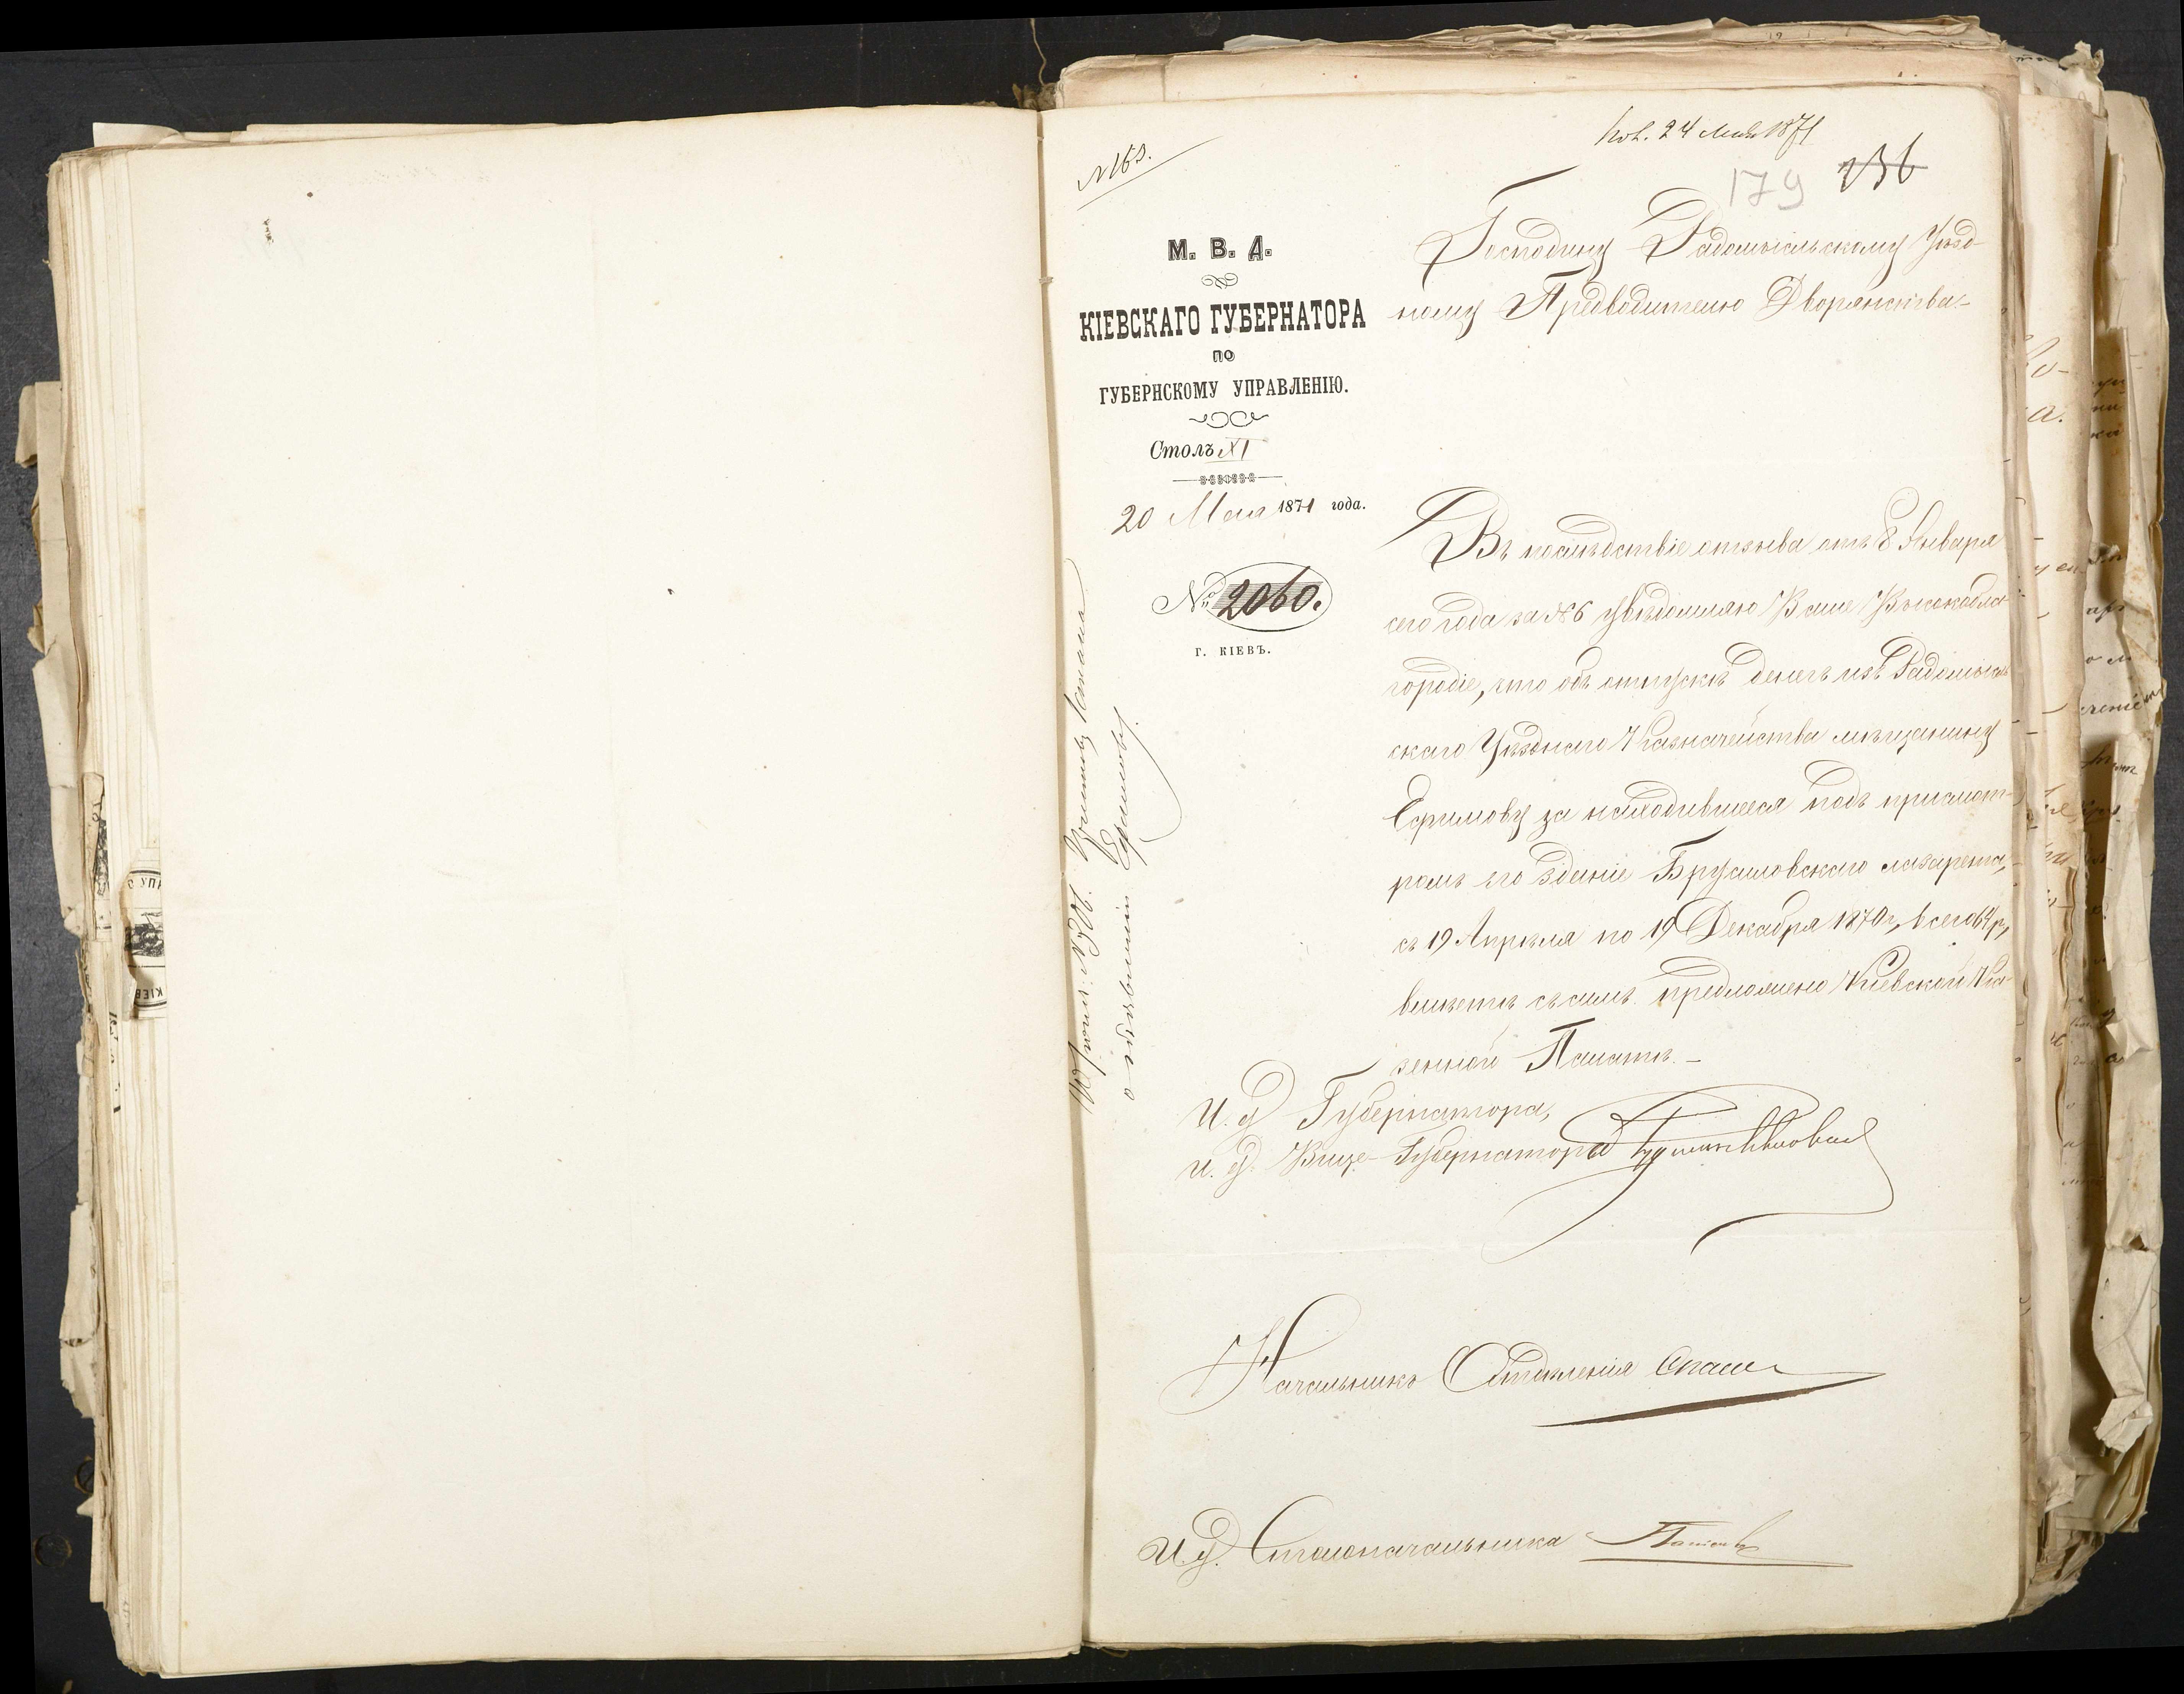 № 163.
пол. 24 Мая 1871
179
М. В. Д.
КІЕВСКАГО ГУБЕРНАТОРА
ПО
ГУБЕРНСКОМУ УПРАВЛЕНІЮ.
Столъ XI
20 Мая 1871 года.
№ 2060.
Г. КІЕВЪ.
Господину Радомысльскому Уѣзд-
ному Предводителю Дворянства.-
Въ послѣдствіе отзыва отъ 8 Января
сего года за №6 увѣдомляю Ваше Высокобла-
городіе, что объ отпускѣ денегъ изъ Радомысль-
скаго Уѣзднаго Казначейства мѣщанину
Ефимову за находившееся подъ присмот-
ромъ его зданіе Брусиловскаго лазарета,
съ 19 Апрѣля по 19 Декабря 1870 г, всего 64 р,
вмѣстѣ съ симъ предложено Кіевской Ка-
зенной Палатѣ.-
И. д Губернатора,
и. д. Вице-Губернатора
Начальникъ Отдѣленія
И. д. Столоначальника
объявленіи Ефимову.